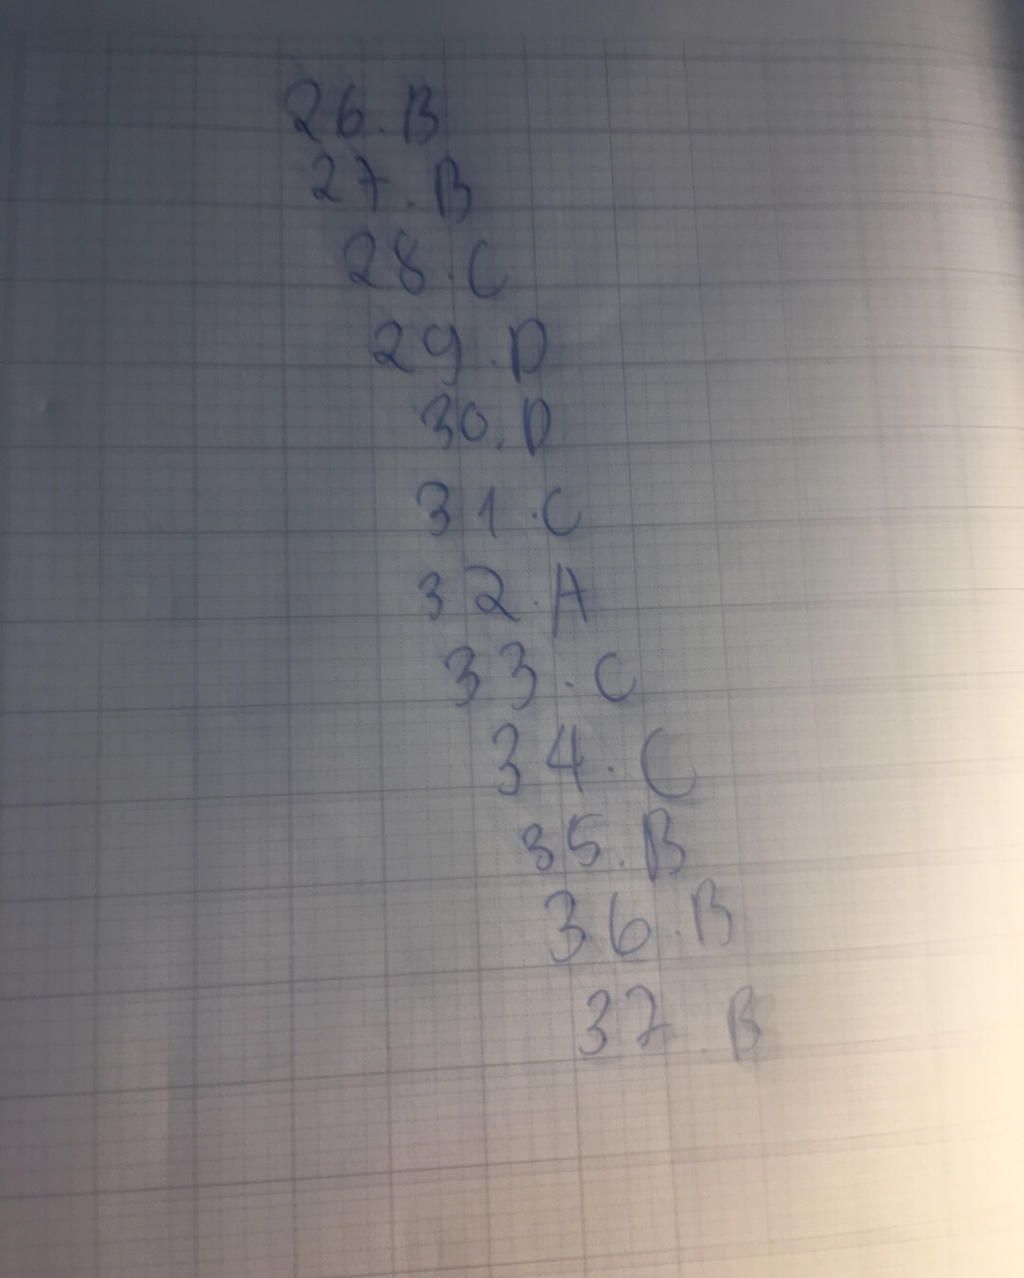 26. B
27. B
28. C
29. D
30. D
31. C
32. A
33. C
34. C
35. B
36. B
37. B